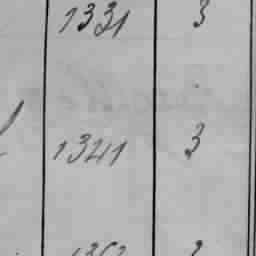 1331 3
1341 3